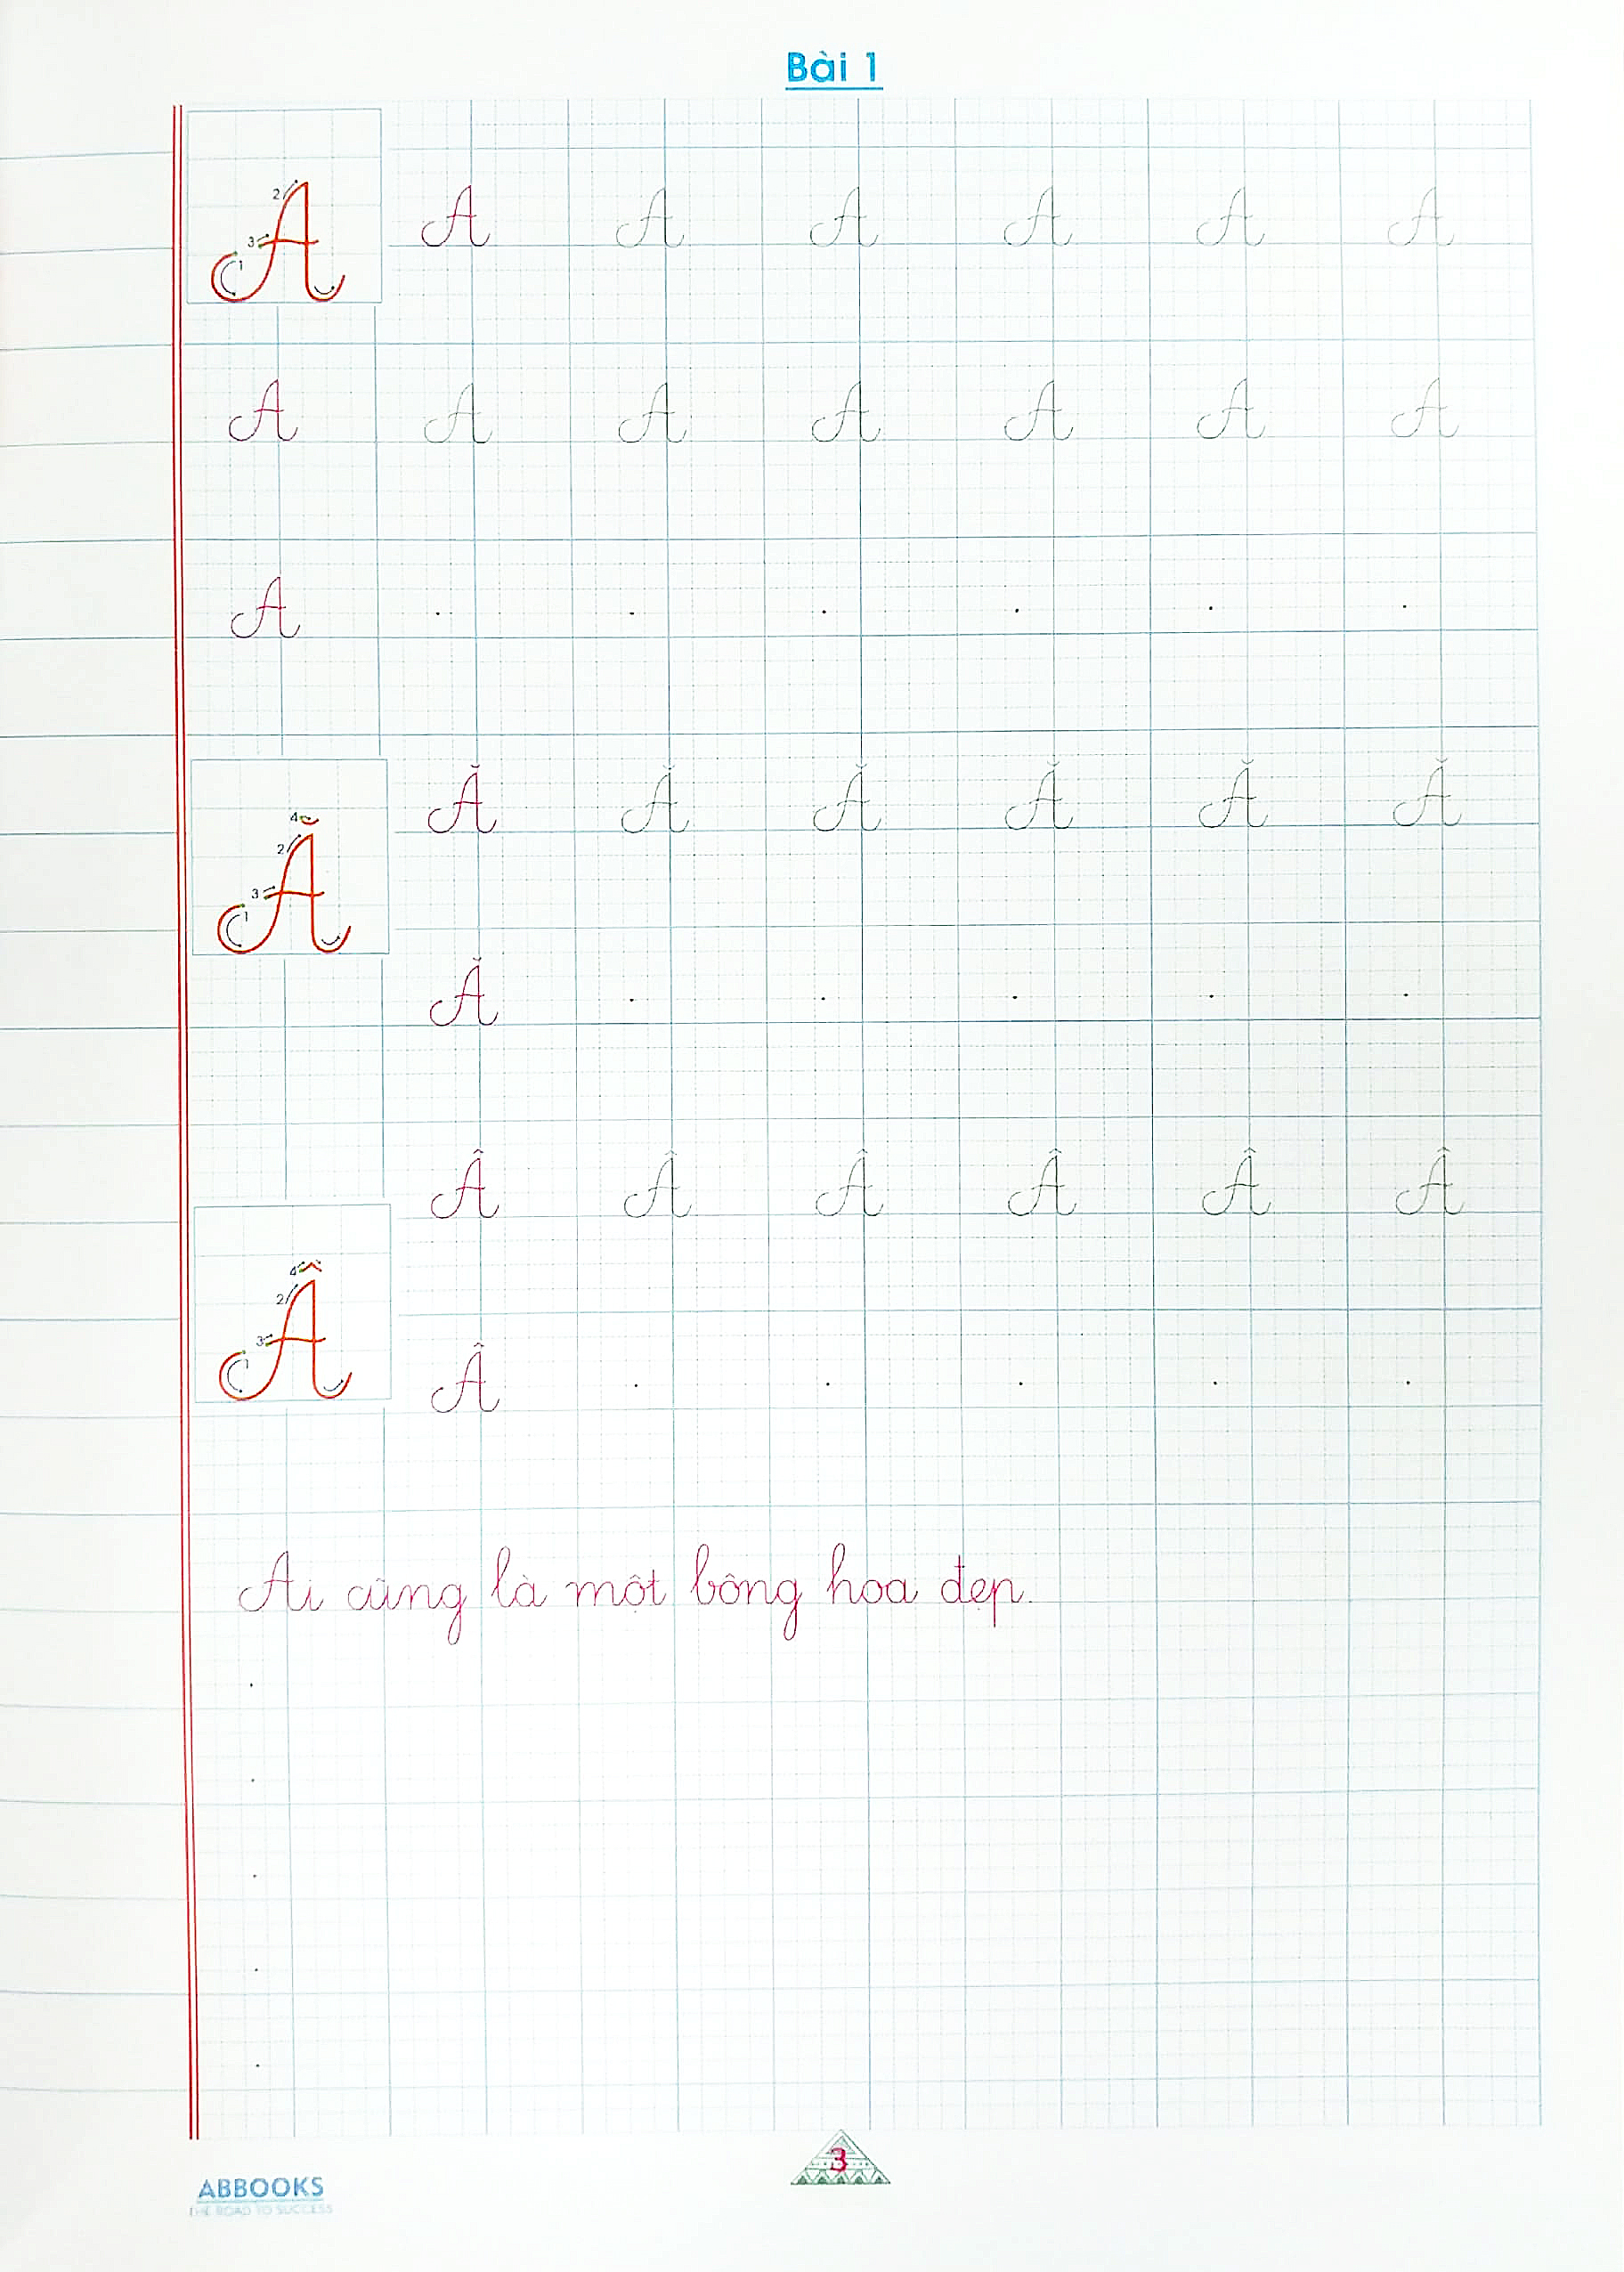 Bài 1
2 3 1 A A A A A A A
A A A A A A A
A
4 2 3 1 Ă Ă Ă Ă Ă Ă Ă
Ă
Â Â Â Â Â Â
4 2 3 1 Â
Â
Ai cũng là một bông hoa đẹp.
3
ABBOOKS
THE ROAD TO SUCCESS